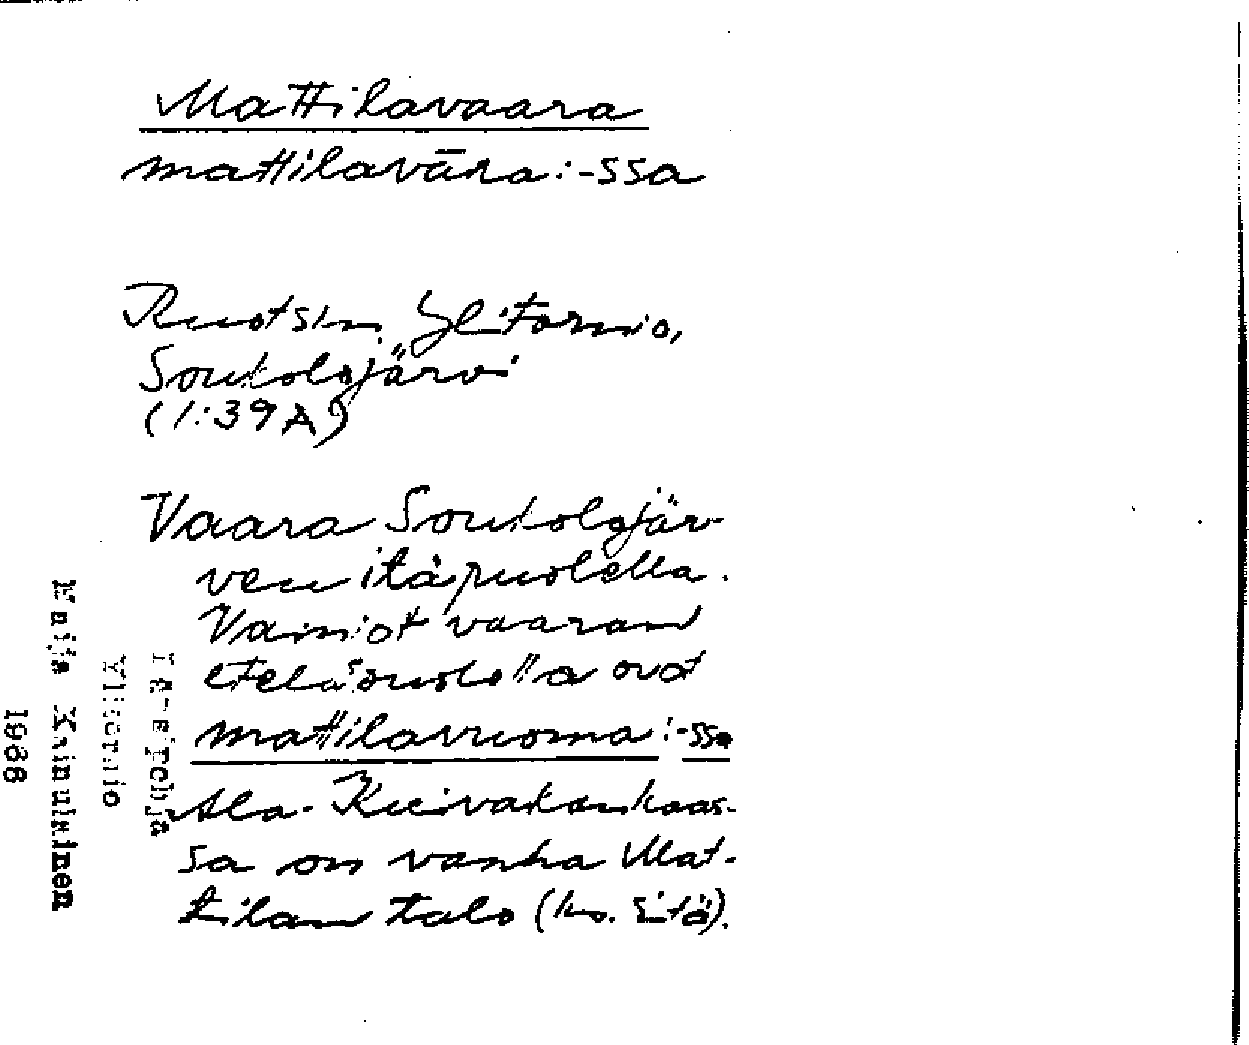 Mattilavaara
mattilavāra:-ssa
Ruotsin Ylitornio,
Soukolojärvi
(1:39 A)
Vaara Soukolojär-
ven itäpuolella.
Vainiot vaaran
eteläpuolella ovat
mattilavuoma:-ssa
Ala-Kuivakankaas-
sa on vanha Mat-
tilan talo (ks. sitä).
Ylitornio
Maija Kainulainen
1988